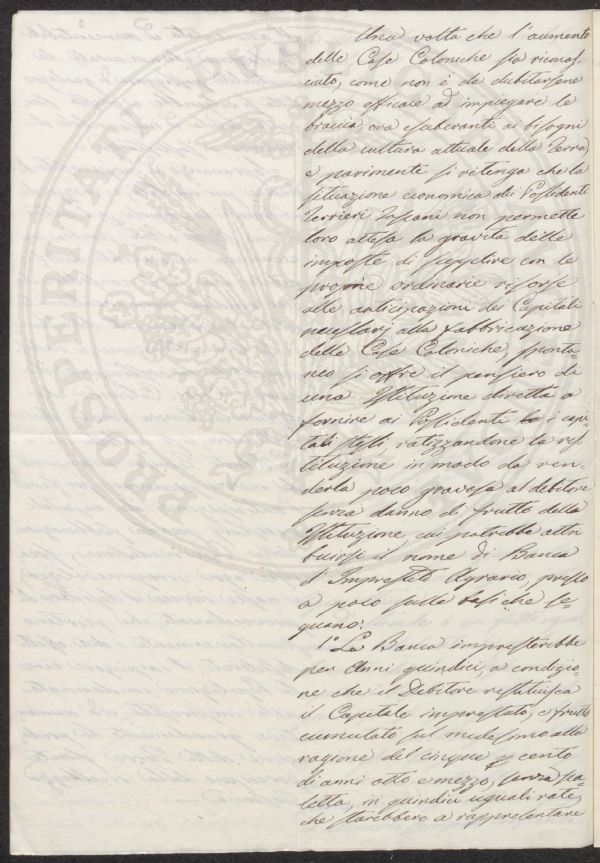 Una volta che l'aumento
delle Case Coloniche sia ricono-
sciuto, come non è da dubitarsene
mezzo efficace ad impiegare le
braccia, ora esuberanti ai bisogni
della cultura attuale della Terra,
e parimente si ritenga che la
situazione economica dei Possidenti
Terrieri Toscani non permette
loro attesa la gravità delle
imposte di supplire con le
proprie ordinarie risorse
alle anticipazioni dei Capitali
necessarj alla fabbricazione
delle Case Coloniche, sponta=
neo si offre il pensiero di
una Istituzione diretta a
fornire ai Possidenti i capi=
tali stessi ratizzandone la res-
tituzione in modo da ren-
derla poco gravosa al debitore
senza danno di frutto della
Istituzione, cui potrebbe attri
buirsi il nome di Banca
d'Imprestito Agrario, presso
a poco sulle basi che se=
guono:
1° La Banca impresterebbe
per Anni quindici, a condizio=
ne che il Debitore restituisca
il Capitale imprestato, e frutto
cumulato sul medesimo alla
ragione del cinque per cento
di anni otto e mezzo, senza fa=
letta, in quindici uguali rate,
che starebbero a rappresentare
PROSPERITATI PVB